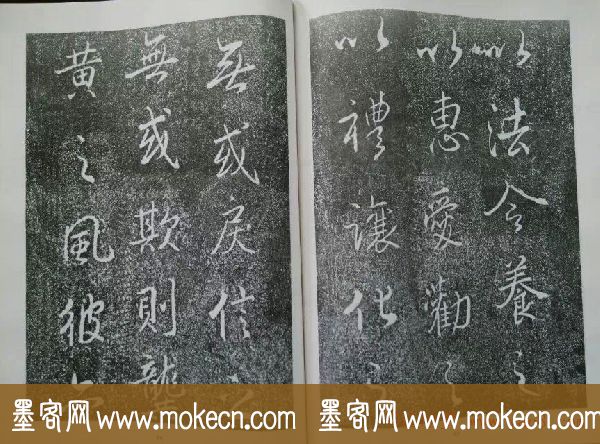 以法令養之
以惠愛勸之
以禮讓化之
無或戾信
無或欺則龔
黄之風彼
墨客网 www.mokecn.com
墨客网 www.mokecn.com